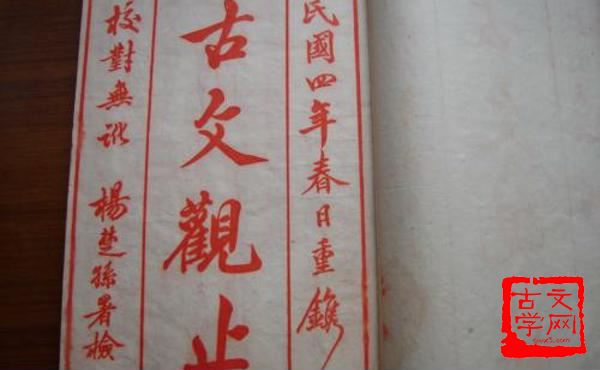 民國四年春日重鐫
古文觀止
校對無訛 楊楚孫署檢
古文
学网